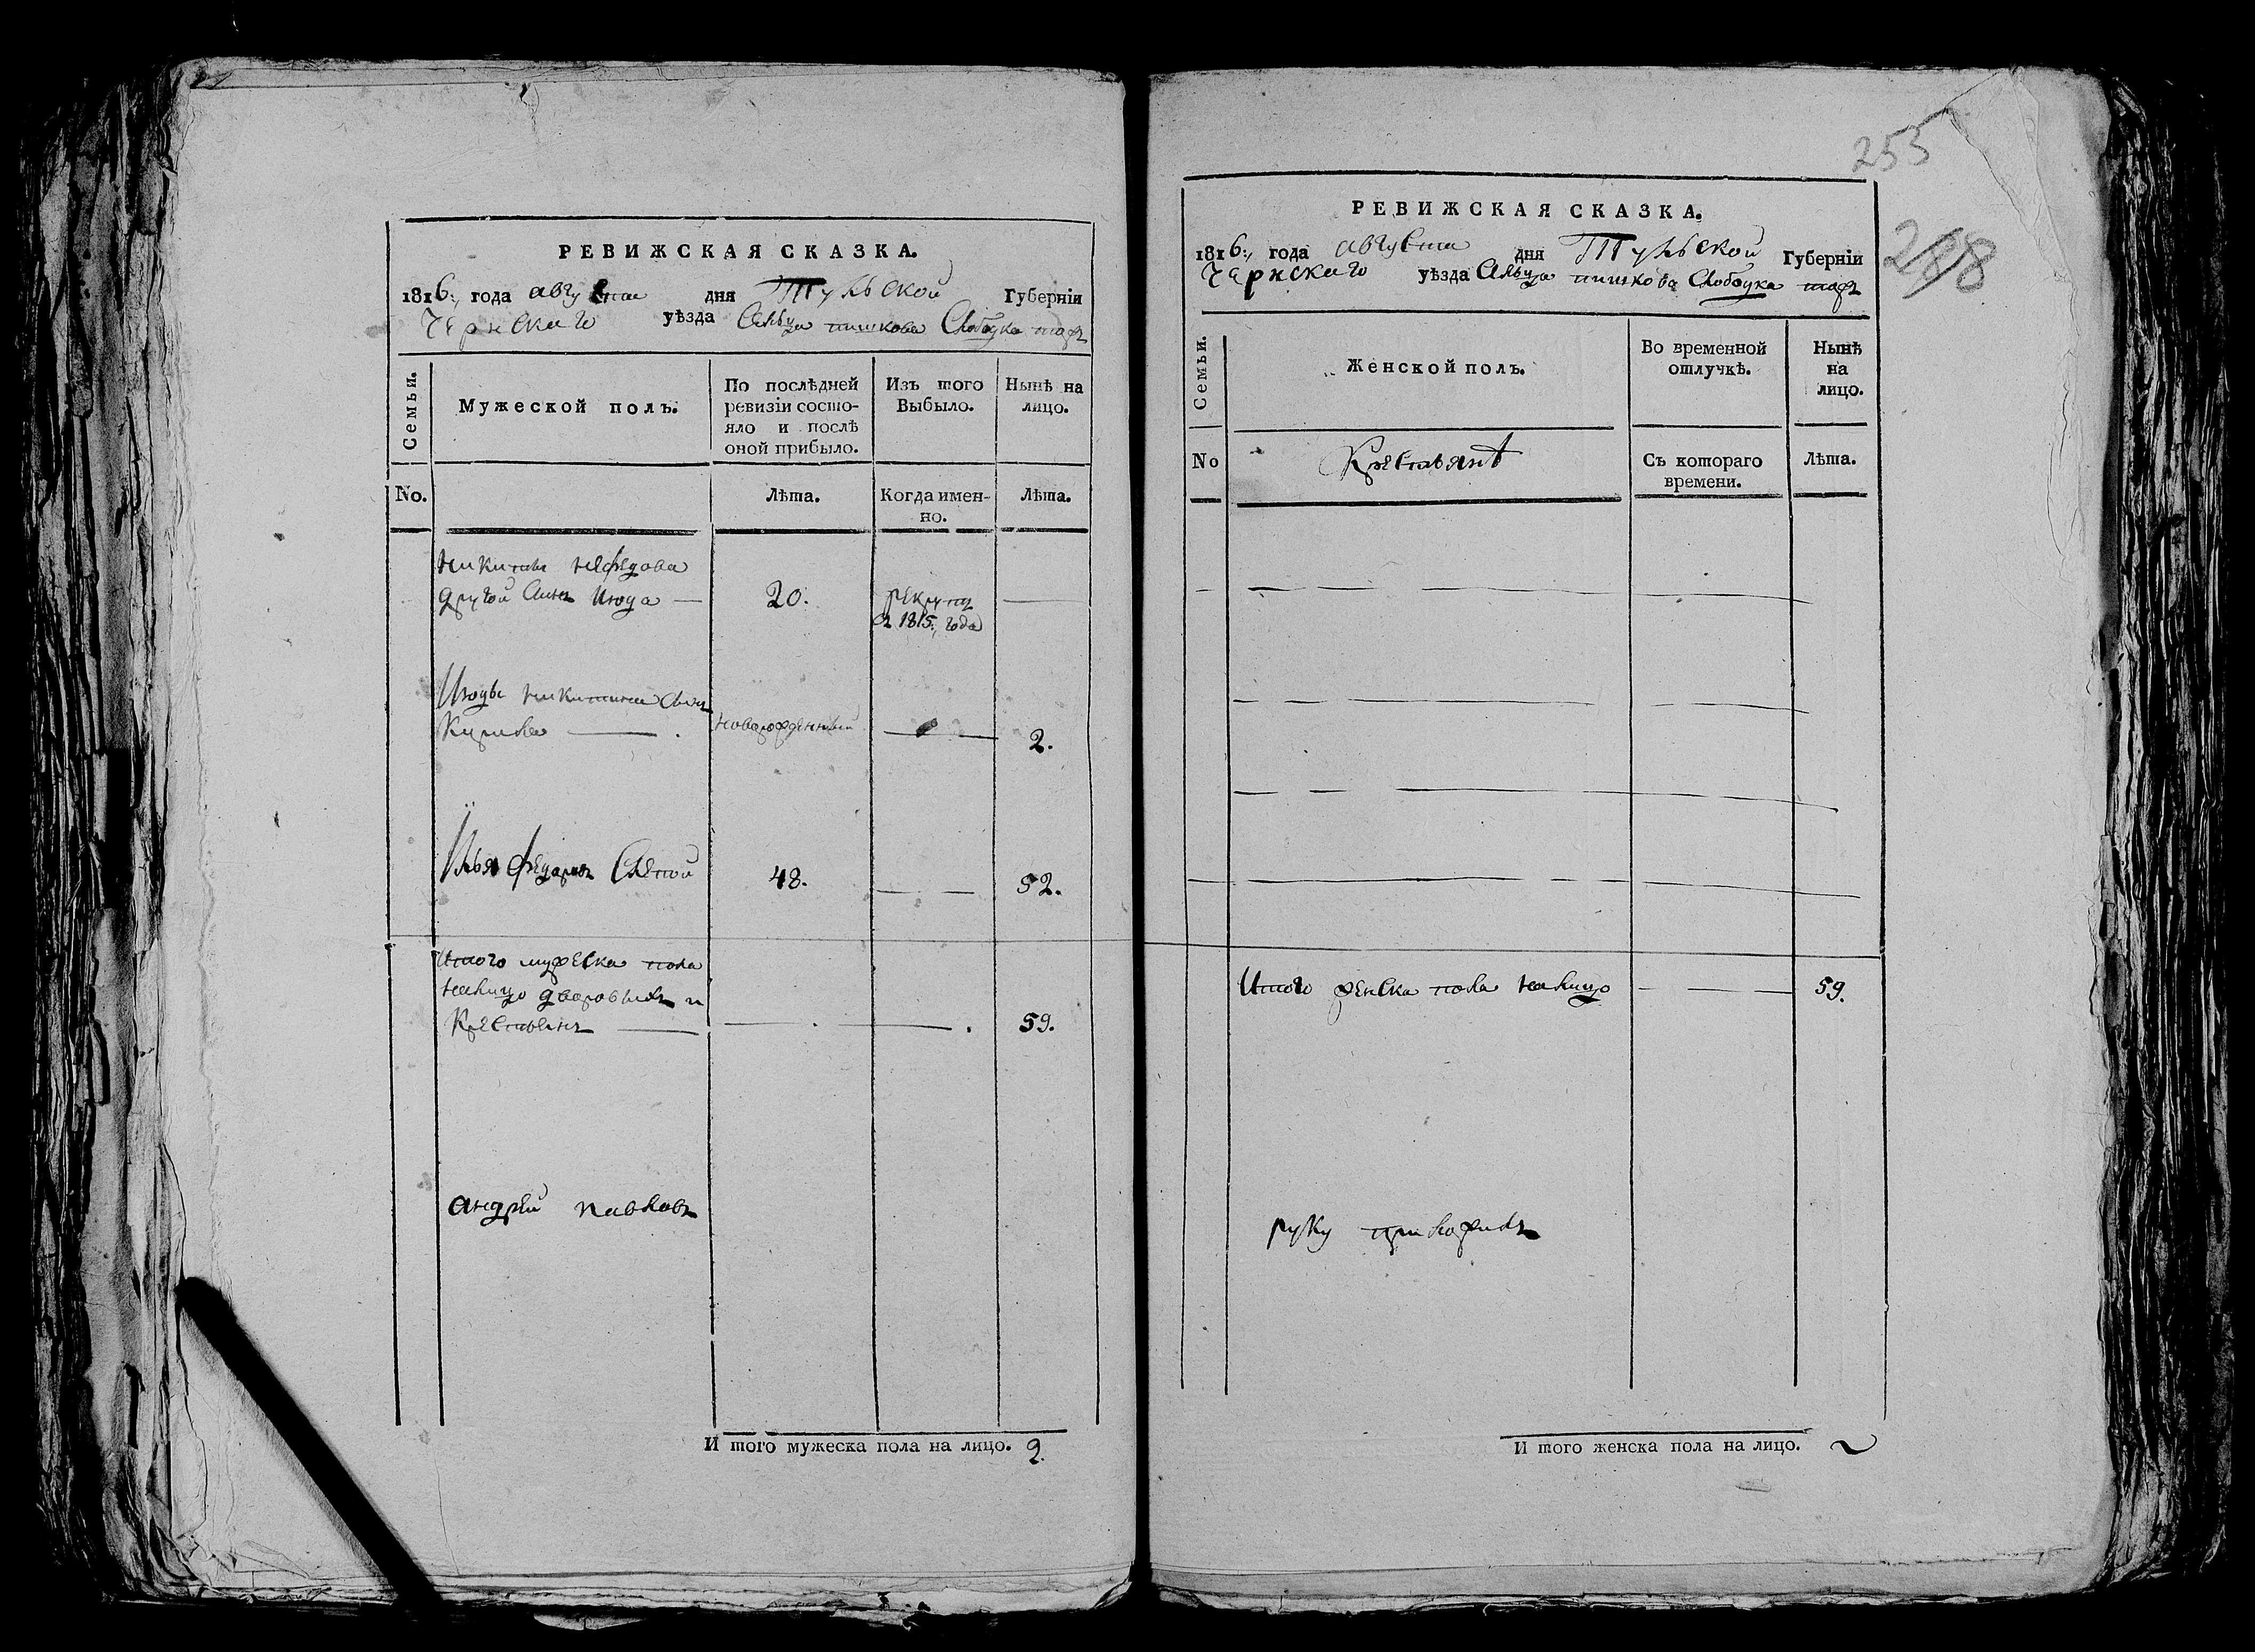 РЕВИЖСКАЯ СКАЗКА.
1816:, года августа дня Тульской Губернiи
Чернскаго уѣзда Сельца пишкова Слободка тожъ
Семьи.
Мужеской полъ.
По послѣдней
ревизiи состо-
яло и послѣ
оной прибыло.
Изъ того
Выбыло.
Нынѣ на
лицо.
No.
Лѣта.
Когда имен-
но.
Лѣта.
Никиты Нефедова
другой Сынъ Июда — 20. рекрутъ —
въ 1815:, года
Июды Никитина Сынъ
Кирила — новорожденный — 2.
Илья Федаровъ Слепой 48. — 52.
Итого мужеска пола
налицо дворовыхъ и
Крестьянъ — 59.
андрей павловъ
И того мужеска пола на лицо. 2.
255
288
РЕВИЖСКАЯ СКАЗКА.
1816:, года августа дня Тульской Губернiи
Чернскаго уѣзда Сельца пишкова Слободка тожъ
Семьи.
Женской полъ.
Во временной
отлучкѣ.
Нынѣ
на
лицо.
No
Крестьянѣ
Съ котораго
времени.
Лѣта.
Итого женска пола налицо — 59.
руку приложилъ
И того женска пола на лицо.